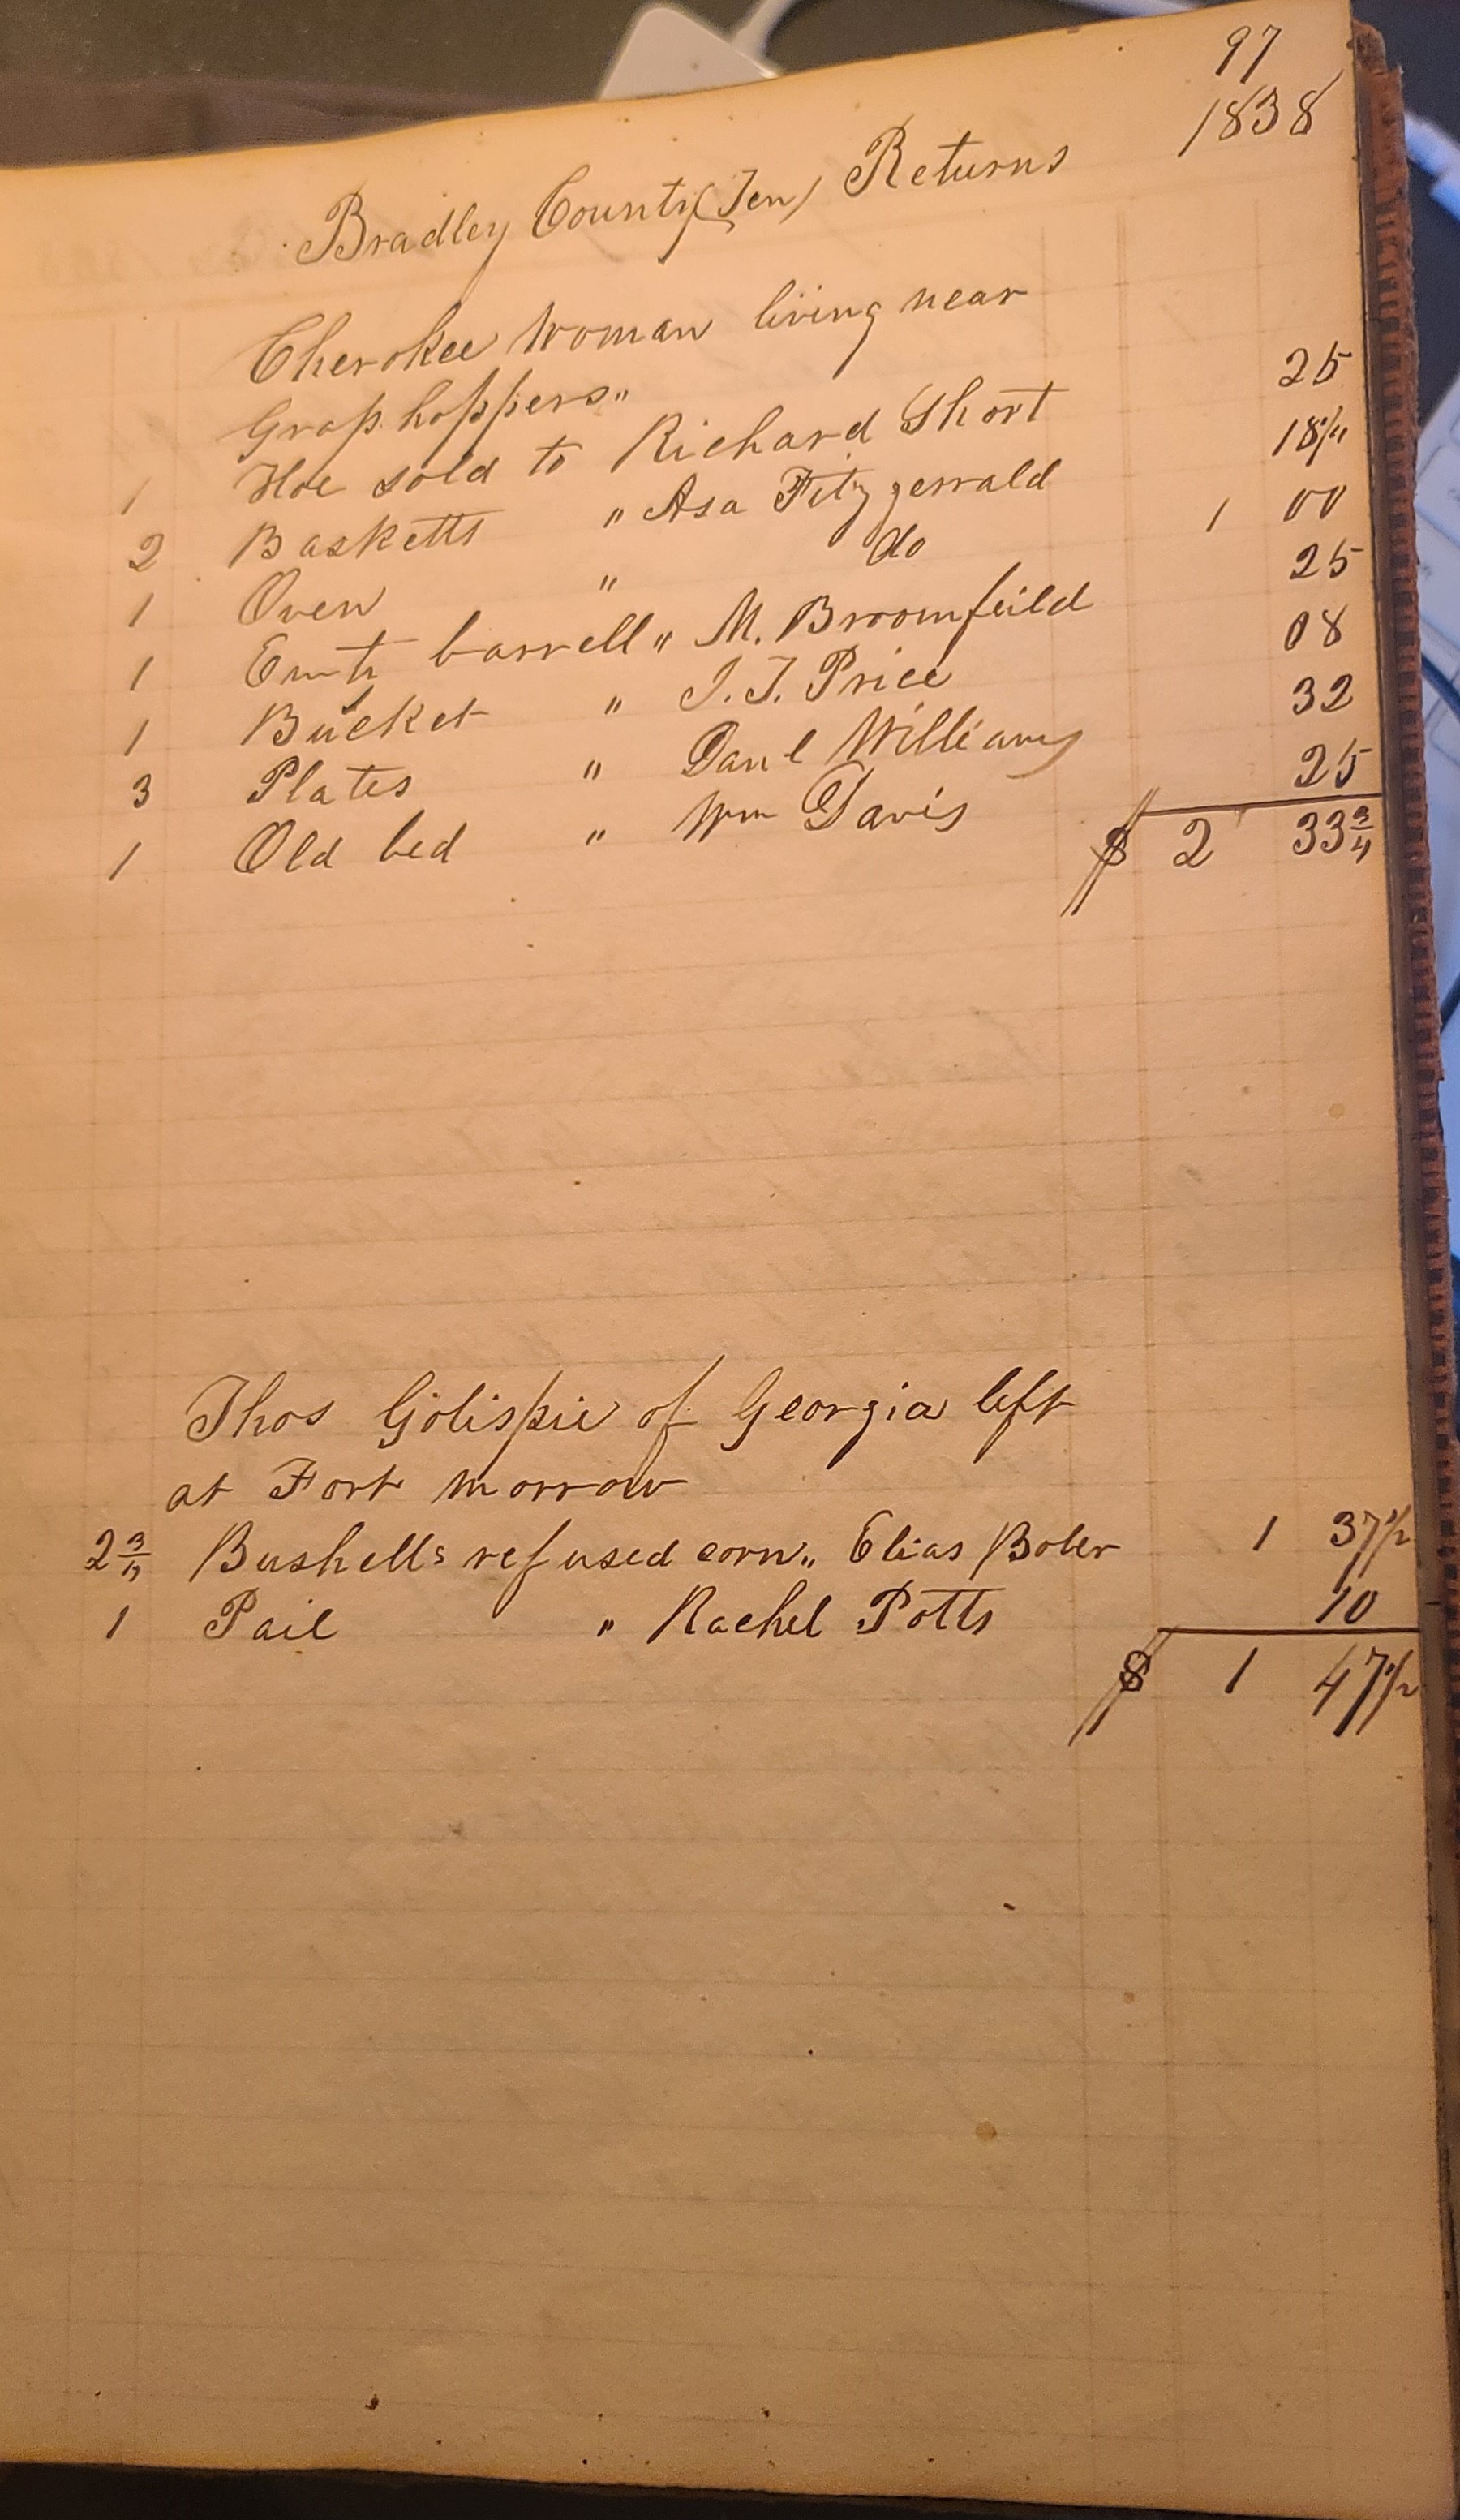 97
1838
Bradley County (Ten) Returns
Cherokee Woman living near
Grasshoppers "
1 Hoe sold to Richard Short 25
2 Basketts " Asa Fitzgerrald 18 3/4
1 Oven " do 1 00
1 Emty barrell " M. Broomfeild 25
1 Bucket " J. T. Price 08
3 Plates " Danl Williams 32
1 Old bed " Wm Davis 25
$ 2 33 3/4
Thos Golispie of Georgia left
at Fort Morrow
2 3/4 Bushells refused corn " Elias Boler 1 37 1/2
1 Pail " Rachel Potts 10
$ 1 47 1/2